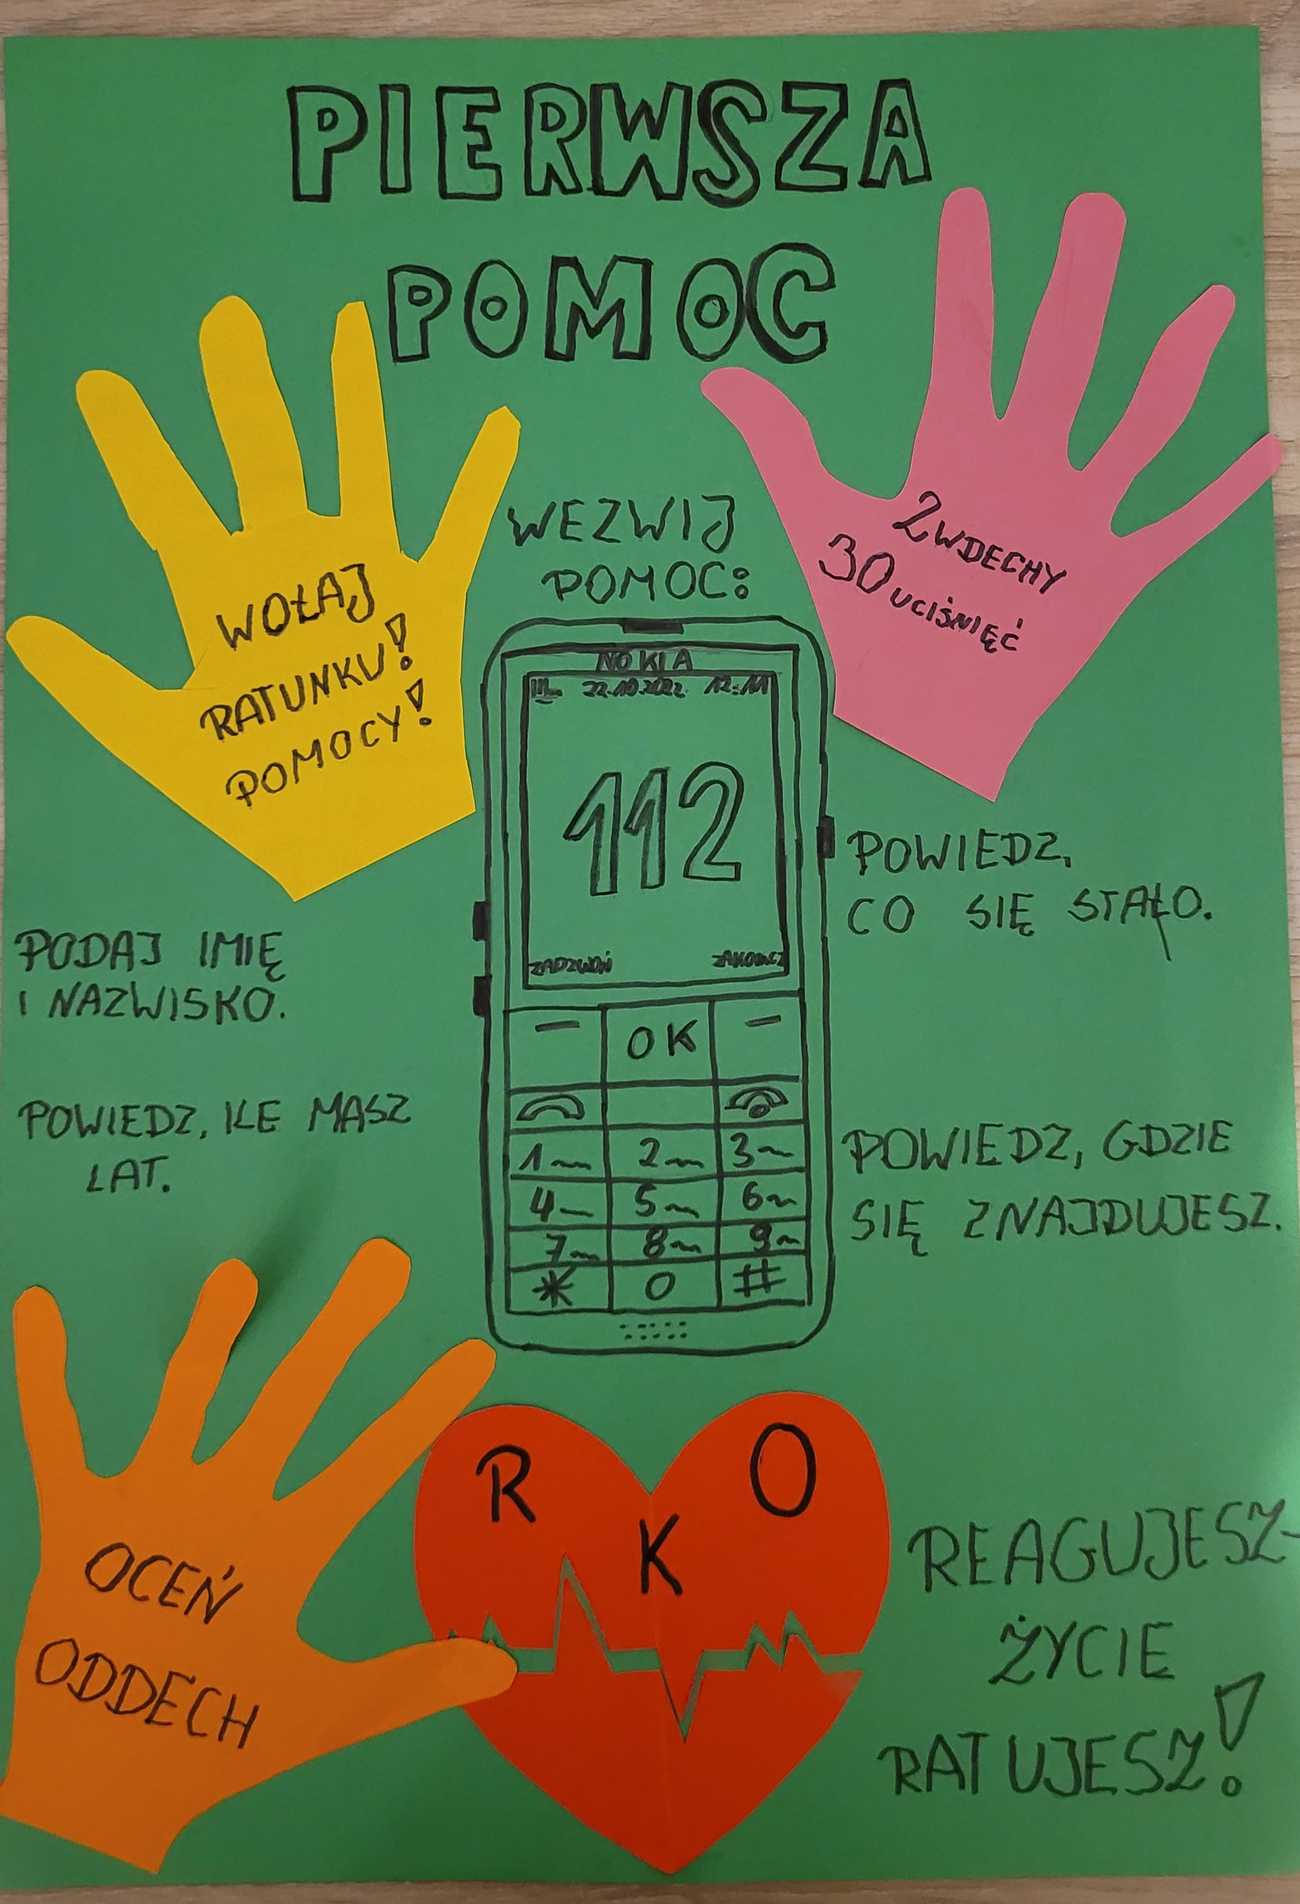 PIERWSZA
POMOC
WOŁAJ
RATUNKU!
POMOCY!
WEZWIJ
POMOC:
2 WDECHY
30 UCIŚNIĘĆ
NOKIA
22.10.2022 12:11
112
ZADZWOŃ ZAKOŃCZ
OK
1 2 3
4 5 6
7 8 9
* 0 #
PODAJ IMIĘ
I NAZWISKO.
POWIEDZ, ILE MASZ
LAT.
POWIEDZ,
CO SIĘ STAŁO.
POWIEDZ, GDZIE
SIĘ ZNAJDUJESZ.
OCEŃ
ODDECH
R K O
REAGUJESZ-
ŻYCIE
RATUJESZ!